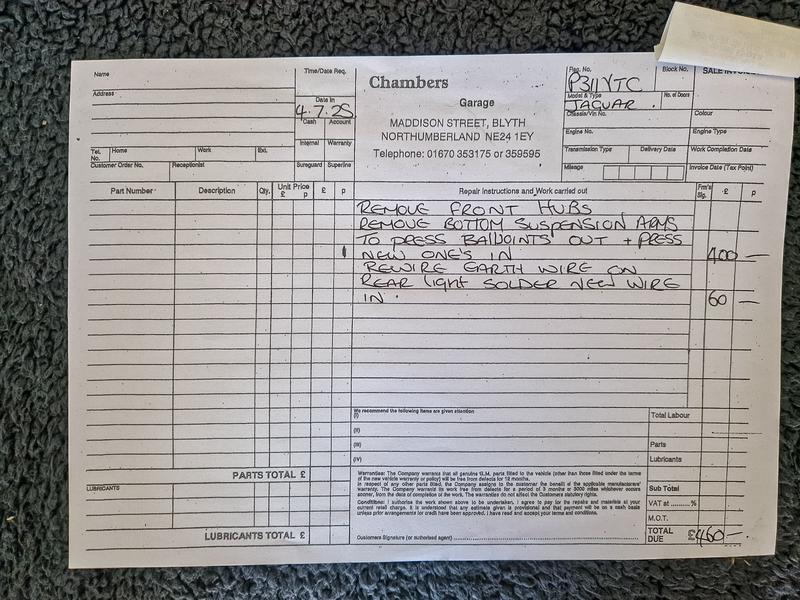 Name
Address
Time/Date Req.
Date In
4.7.25
Cash Account
Internal Warranty
Sureguard Superline
Tel. No. Home Work Ext.
Customer Order No. Receptionist
Chambers
Garage
MADDISON STREET, BLYTH
NORTHUMBERLAND NE24 1EY
Telephone: 01670 353175 or 359595
Reg. No. Block No.
P311YTC
Model & Type No. of Doors
JAGUAR.
Chassis/Vin No. Colour
Engine No. Engine Type
Transmission Type Delivery Date Work Completion Date
Mileage Invoice Date (Tax Point)
SALE INVOI
Part Number Description Qty. Unit Price £ p £ p Repair Instructions and Work carried out Frm's Sig. £ p
REMOVE FRONT HUBS
REMOVE BOTTOM SUSPENSION ARMS
TO PRESS BALLJOINTS OUT + PRESS
NEW ONE'S IN 400 —
REWIRE EARTH WIRE ON
REAR light SOLDER NEW WIRE
IN. 60 —
We recommend the following items are given attention
(i) Total Labour
(ii)
(iii) Parts
(iv) Lubricants
PARTS TOTAL £
LUBRICANTS
LUBRICANTS TOTAL £
Warranties: The Company warrants that all genuine U.M. parts fitted to the vehicle (other than those fitted under the terms
of the new vehicle warranty or policy) will be free from defects for 12 months.
In respect of any other parts fitted, the Company assigns to the customer the benefit of the applicable manufacturers'
warranty. The Company warrants its work free from defects for a period of 3 months or 3000 miles whichever occurs
sooner, from the date of completion of the work. The warranties do not affect the Customers statutory rights.
Conditions: I authorise the work shown above to be undertaken. I agree to pay for the repairs and materials at your
current retail charge. It is understood that any estimate given is provisional and that payment will be on a cash basis
unless prior arrangements for credit have been approved. I have read and accept your terms and conditions.
Customers Signature (or authorised agent)
Sub Total
VAT at ........ %
M.O.T.
TOTAL DUE £460 —